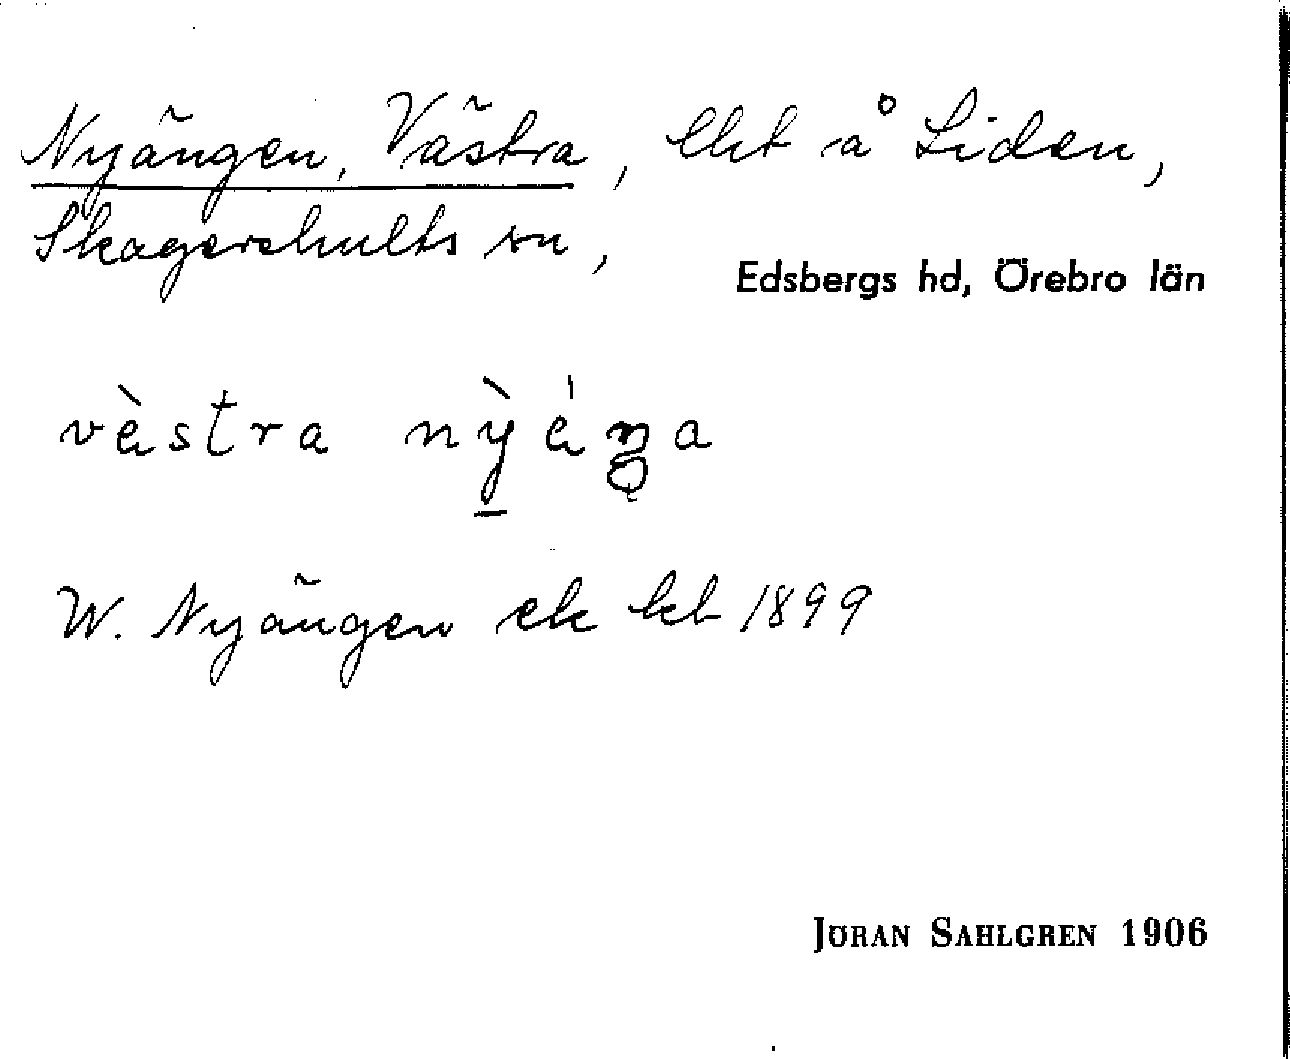 Nyängen, Västra, lht å Liden,
Skagershults sn,
Edsbergs hd, Örebro län
västra nỳáŋa
W. Nyängen ek kb 1899
JÖRAN SAHLGREN 1906